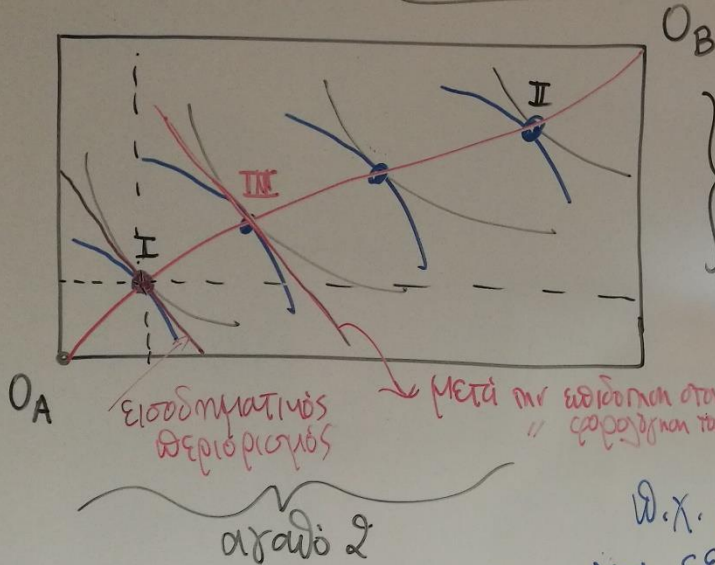 O_B
II
III
I
O_A
εισοδηματικός
περιορισμός
μετά την επιδότηση στον
" φορολόγηση το
αγαθό 2
π.χ.